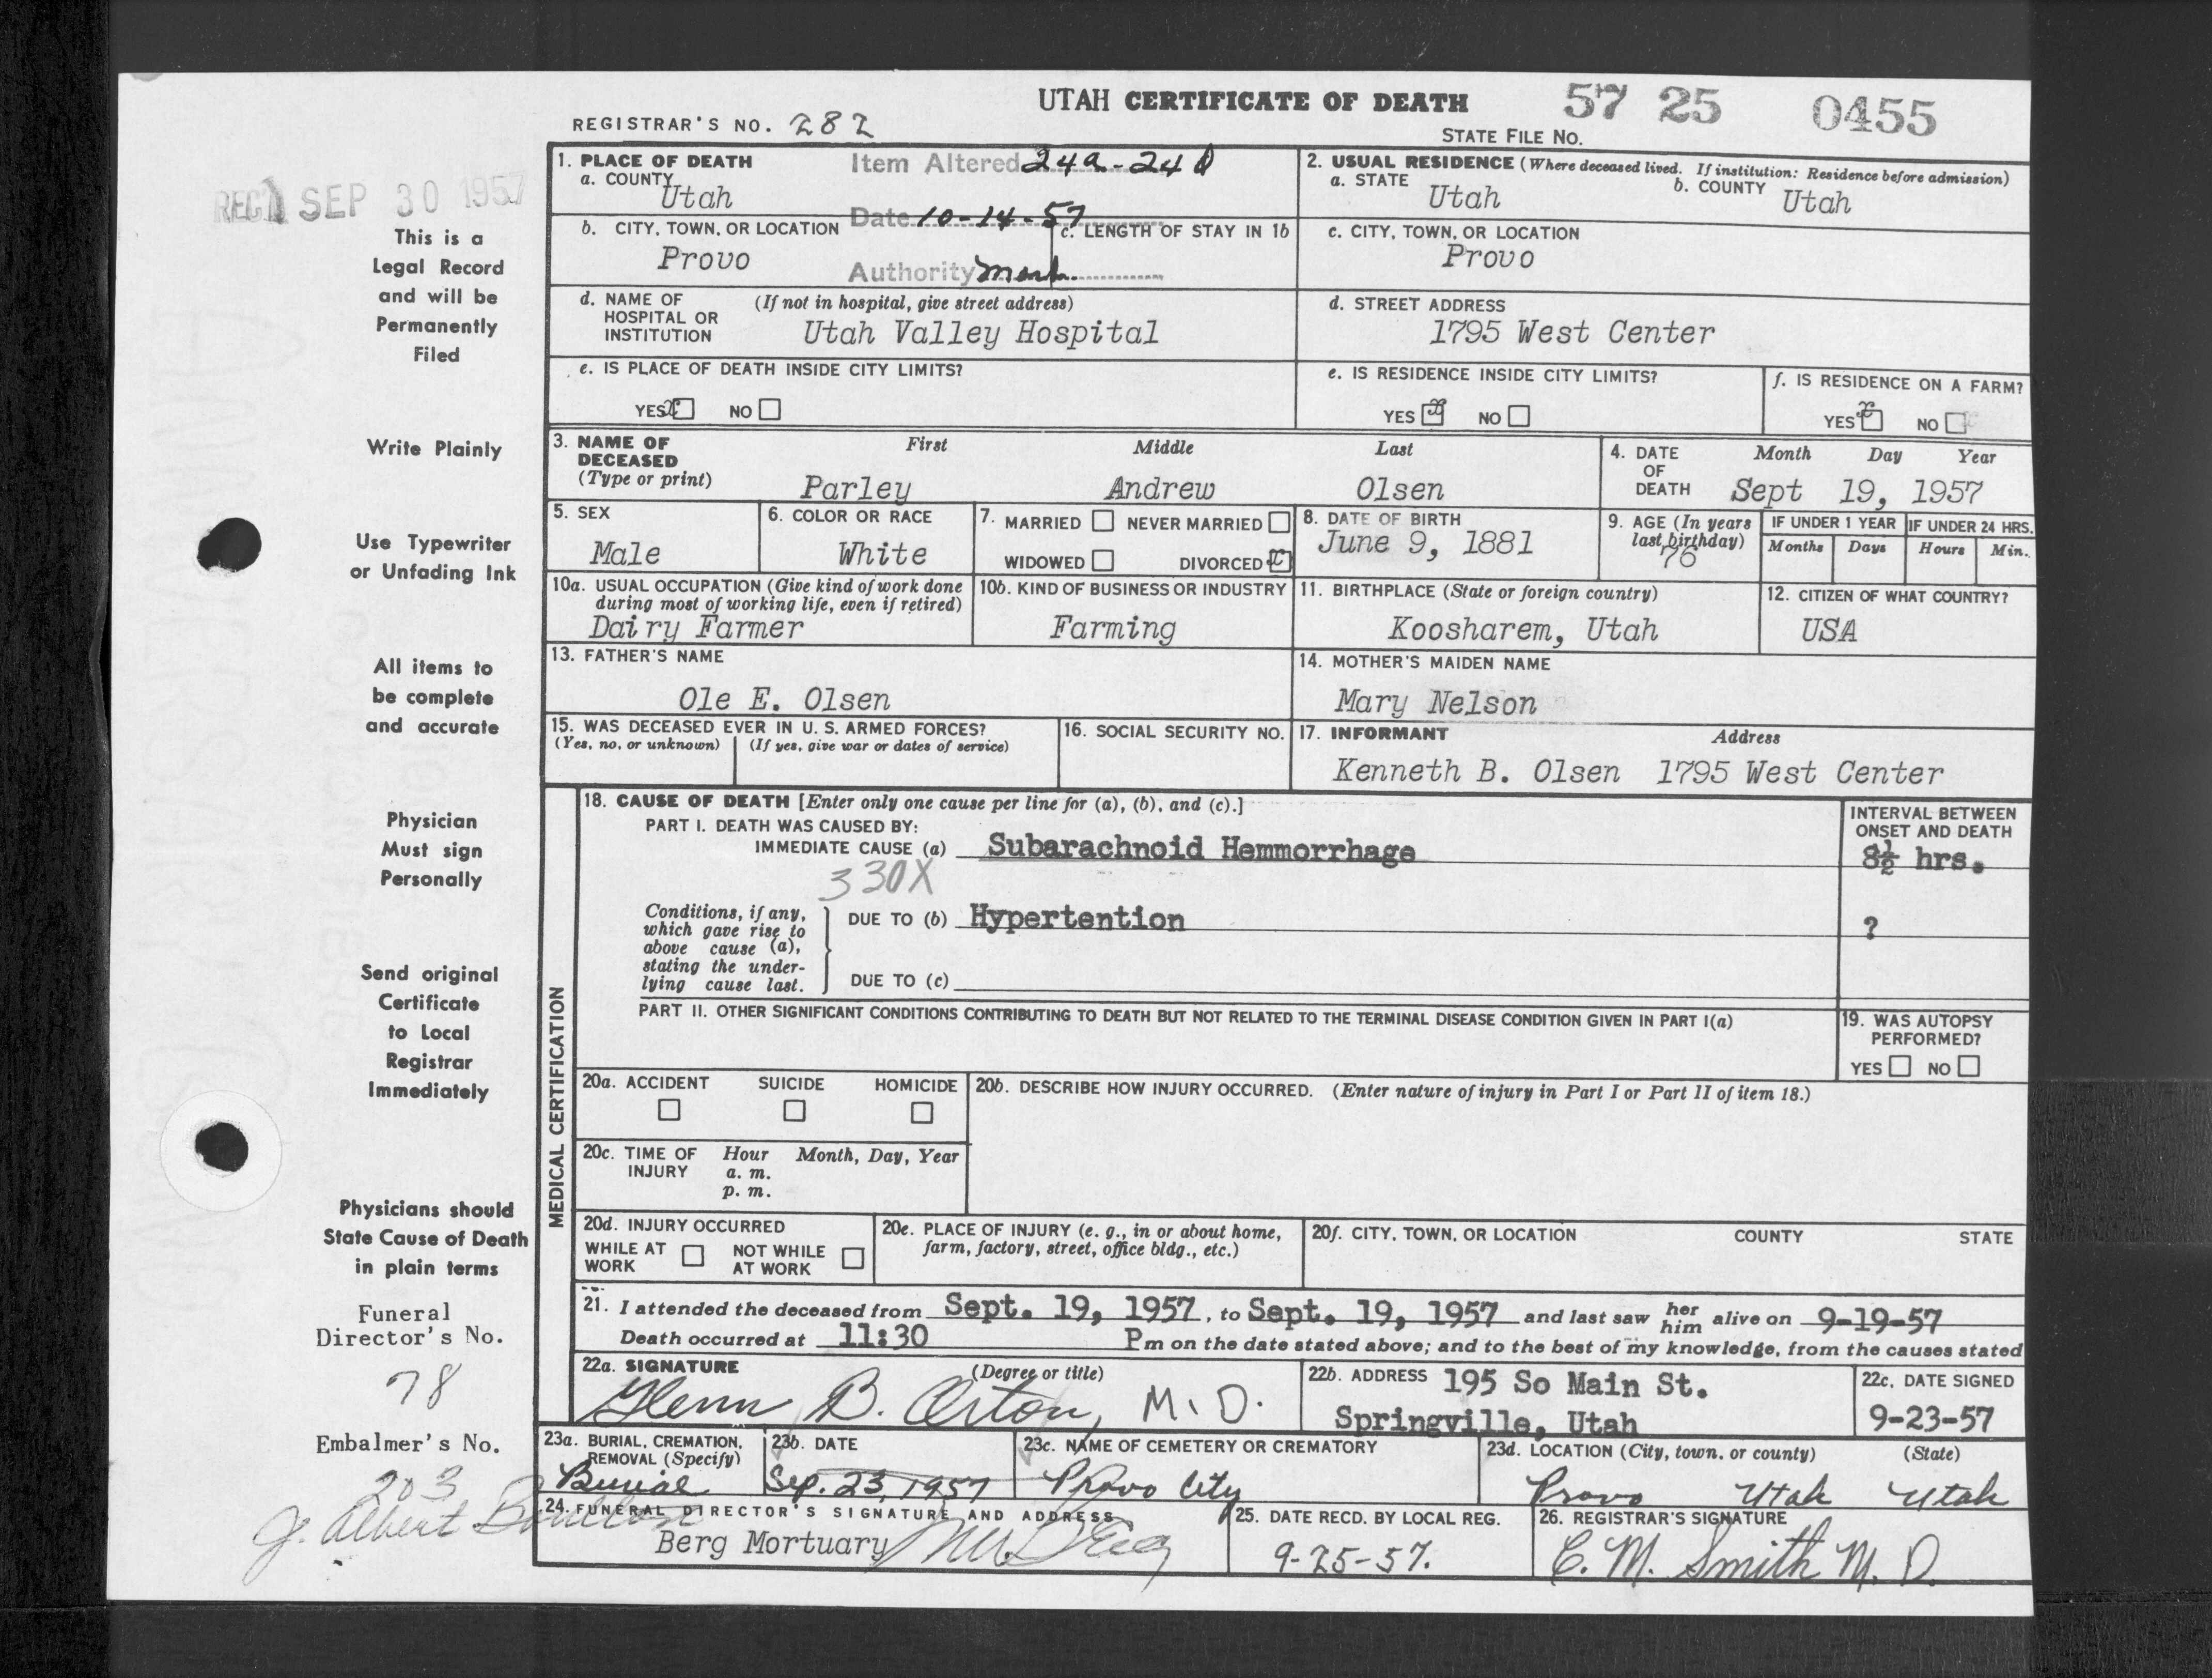 UTAH CERTIFICATE OF DEATH
57 25 0455
REGISTRAR'S NO. 282
STATE FILE NO.
REC'D SEP 30 1957
This is a
Legal Record
and will be
Permanently
Filed
Write Plainly
Use Typewriter
or Unfading Ink
All items to
be complete
and accurate
Physician
Must sign
Personally
Send original
Certificate
to Local
Registrar
Immediately
Physicians should
State Cause of Death
in plain terms
Funeral
Director's No.
78
Embalmer's No.
203
J. Albert
1. PLACE OF DEATH
a. COUNTY
Utah
Item Altered 24a-24d
Date 10-14-57
Authority
2. USUAL RESIDENCE (Where deceased lived. If institution: Residence before admission)
a. STATE Utah
b. COUNTY Utah
b. CITY, TOWN, OR LOCATION
Provo
c. LENGTH OF STAY IN 1b
c. CITY, TOWN, OR LOCATION
Provo
d. NAME OF HOSPITAL OR INSTITUTION
(If not in hospital, give street address)
Utah Valley Hospital
d. STREET ADDRESS
1795 West Center
e. IS PLACE OF DEATH INSIDE CITY LIMITS?
YES x NO
e. IS RESIDENCE INSIDE CITY LIMITS?
YES x NO
f. IS RESIDENCE ON A FARM?
YES x NO
3. NAME OF DECEASED (Type or print)
First Middle Last
Parley Andrew Olsen
4. DATE OF DEATH
Month Day Year
Sept 19, 1957
5. SEX
Male
6. COLOR OR RACE
White
7. MARRIED NEVER MARRIED
WIDOWED DIVORCED x
8. DATE OF BIRTH
June 9, 1881
9. AGE (In years last birthday)
76
IF UNDER 1 YEAR
Months Days
IF UNDER 24 HRS.
Hours Min.
10a. USUAL OCCUPATION (Give kind of work done during most of working life, even if retired)
Dairy Farmer
10b. KIND OF BUSINESS OR INDUSTRY
Farming
11. BIRTHPLACE (State or foreign country)
Koosharem, Utah
12. CITIZEN OF WHAT COUNTRY?
USA
13. FATHER'S NAME
Ole E. Olsen
14. MOTHER'S MAIDEN NAME
Mary Nelson
15. WAS DECEASED EVER IN U. S. ARMED FORCES?
(Yes, no, or unknown) (If yes, give war or dates of service)
16. SOCIAL SECURITY NO.
17. INFORMANT Address
Kenneth B. Olsen 1795 West Center
MEDICAL CERTIFICATION
18. CAUSE OF DEATH [Enter only one cause per line for (a), (b), and (c).]
INTERVAL BETWEEN ONSET AND DEATH
PART I. DEATH WAS CAUSED BY:
IMMEDIATE CAUSE (a) Subarachnoid Hemmorrhage
8½ hrs.
330X
Conditions, if any, which gave rise to above cause (a), stating the underlying cause last.
DUE TO (b) Hypertention
?
DUE TO (c)
PART II. OTHER SIGNIFICANT CONDITIONS CONTRIBUTING TO DEATH BUT NOT RELATED TO THE TERMINAL DISEASE CONDITION GIVEN IN PART I(a)
19. WAS AUTOPSY PERFORMED?
YES NO
20a. ACCIDENT SUICIDE HOMICIDE
20b. DESCRIBE HOW INJURY OCCURRED. (Enter nature of injury in Part I or Part II of item 18.)
20c. TIME OF INJURY
Hour Month, Day, Year
a. m.
p. m.
20d. INJURY OCCURRED
WHILE AT WORK NOT WHILE AT WORK
20e. PLACE OF INJURY (e. g., in or about home, farm, factory, street, office bldg., etc.)
20f. CITY, TOWN, OR LOCATION COUNTY STATE
21. I attended the deceased from Sept. 19, 1957, to Sept. 19, 1957 and last saw her him alive on 9-19-57
Death occurred at 11:30 Pm on the date stated above; and to the best of my knowledge, from the causes stated
22a. SIGNATURE (Degree or title)
Glenn B. Orton, M. D.
22b. ADDRESS 195 So Main St.
Springville, Utah
22c. DATE SIGNED
9-23-57
23a. BURIAL, CREMATION, REMOVAL (Specify)
Burial
23b. DATE
Sep. 23, 1957
23c. NAME OF CEMETERY OR CREMATORY
Provo City
23d. LOCATION (City, town, or county) (State)
Provo Utah Utah
24. FUNERAL DIRECTOR'S SIGNATURE AND ADDRESS
Berg Mortuary
25. DATE RECD. BY LOCAL REG.
9-25-57.
26. REGISTRAR'S SIGNATURE
C. M. Smith M. D.